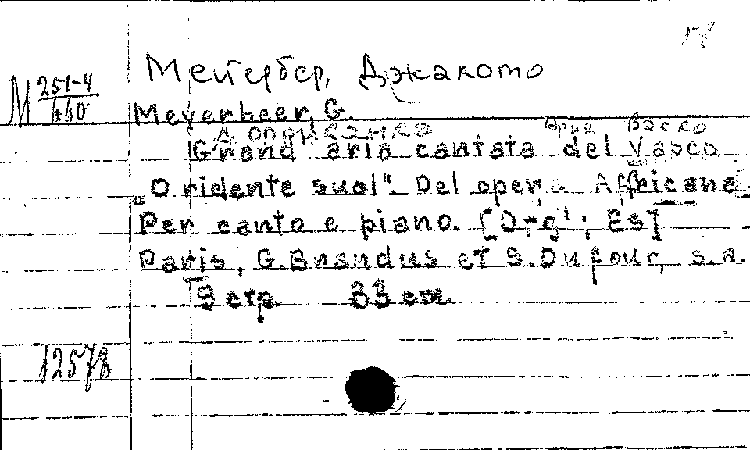 Мейербер, Джакомо
М 251-4
660
Meyerbeer, G.
Африканка Ария Васко
Grand aria cantata del Vasco
„O ridente suol". Del opera Africane
Per canto e piano. [D-g¹; Es]
Paris, G. Brandus et S. Dufour, s.a.
9 стр. 33 см.
12578